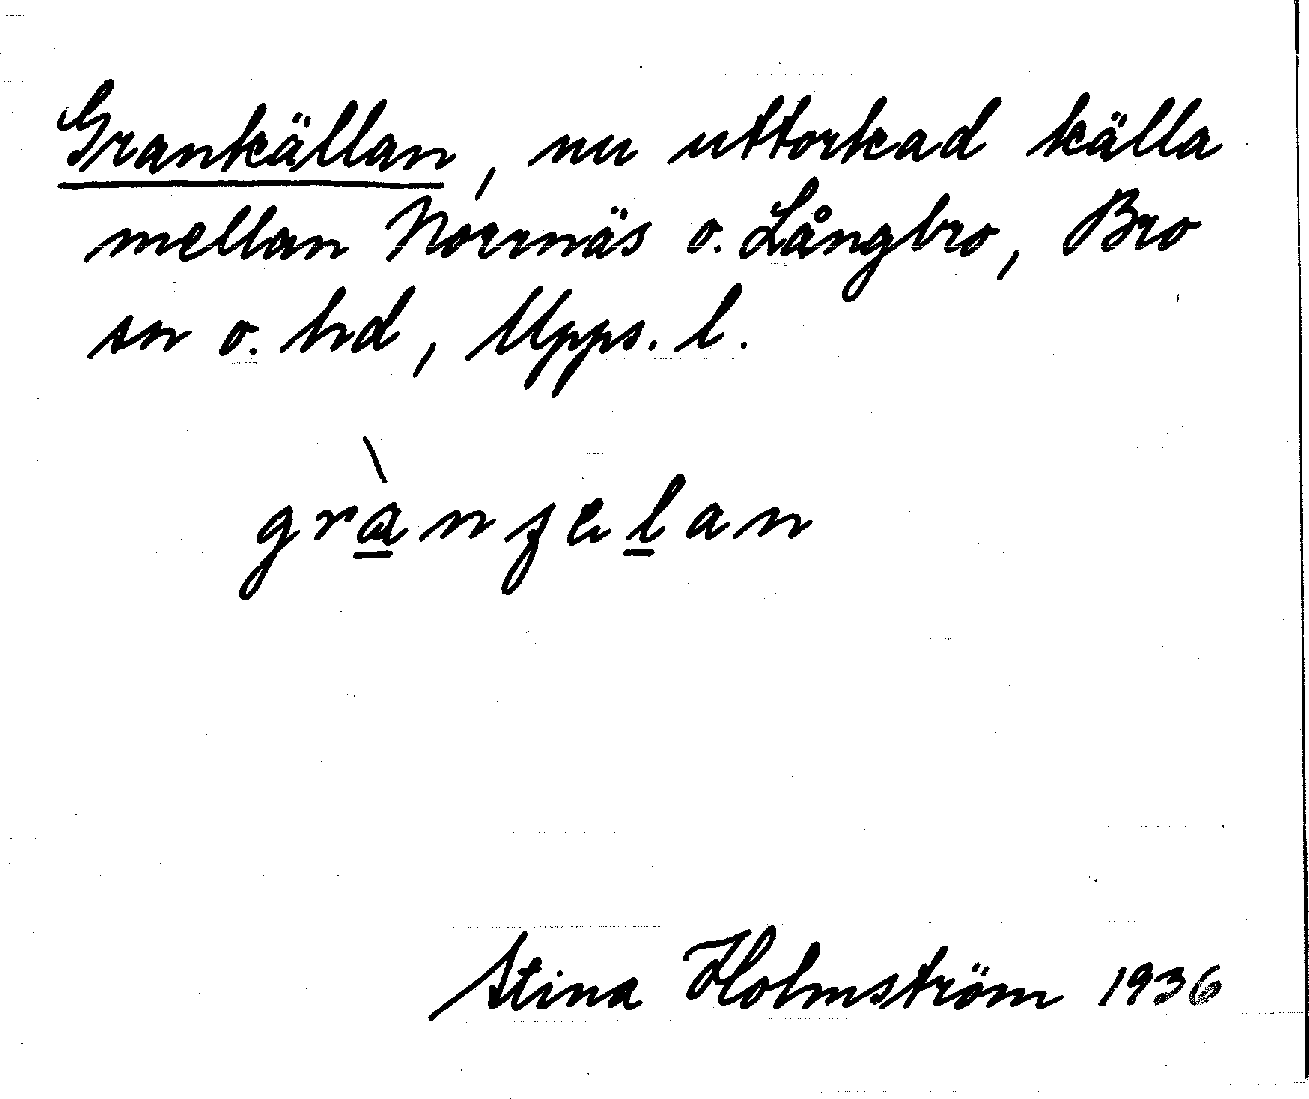 Grankällan, nu uttorkad källa
mellan Norrnäs o. Långbro, Bro
sn o. hd, Upps. l.
grànʃelan
Stina Holmström 1936